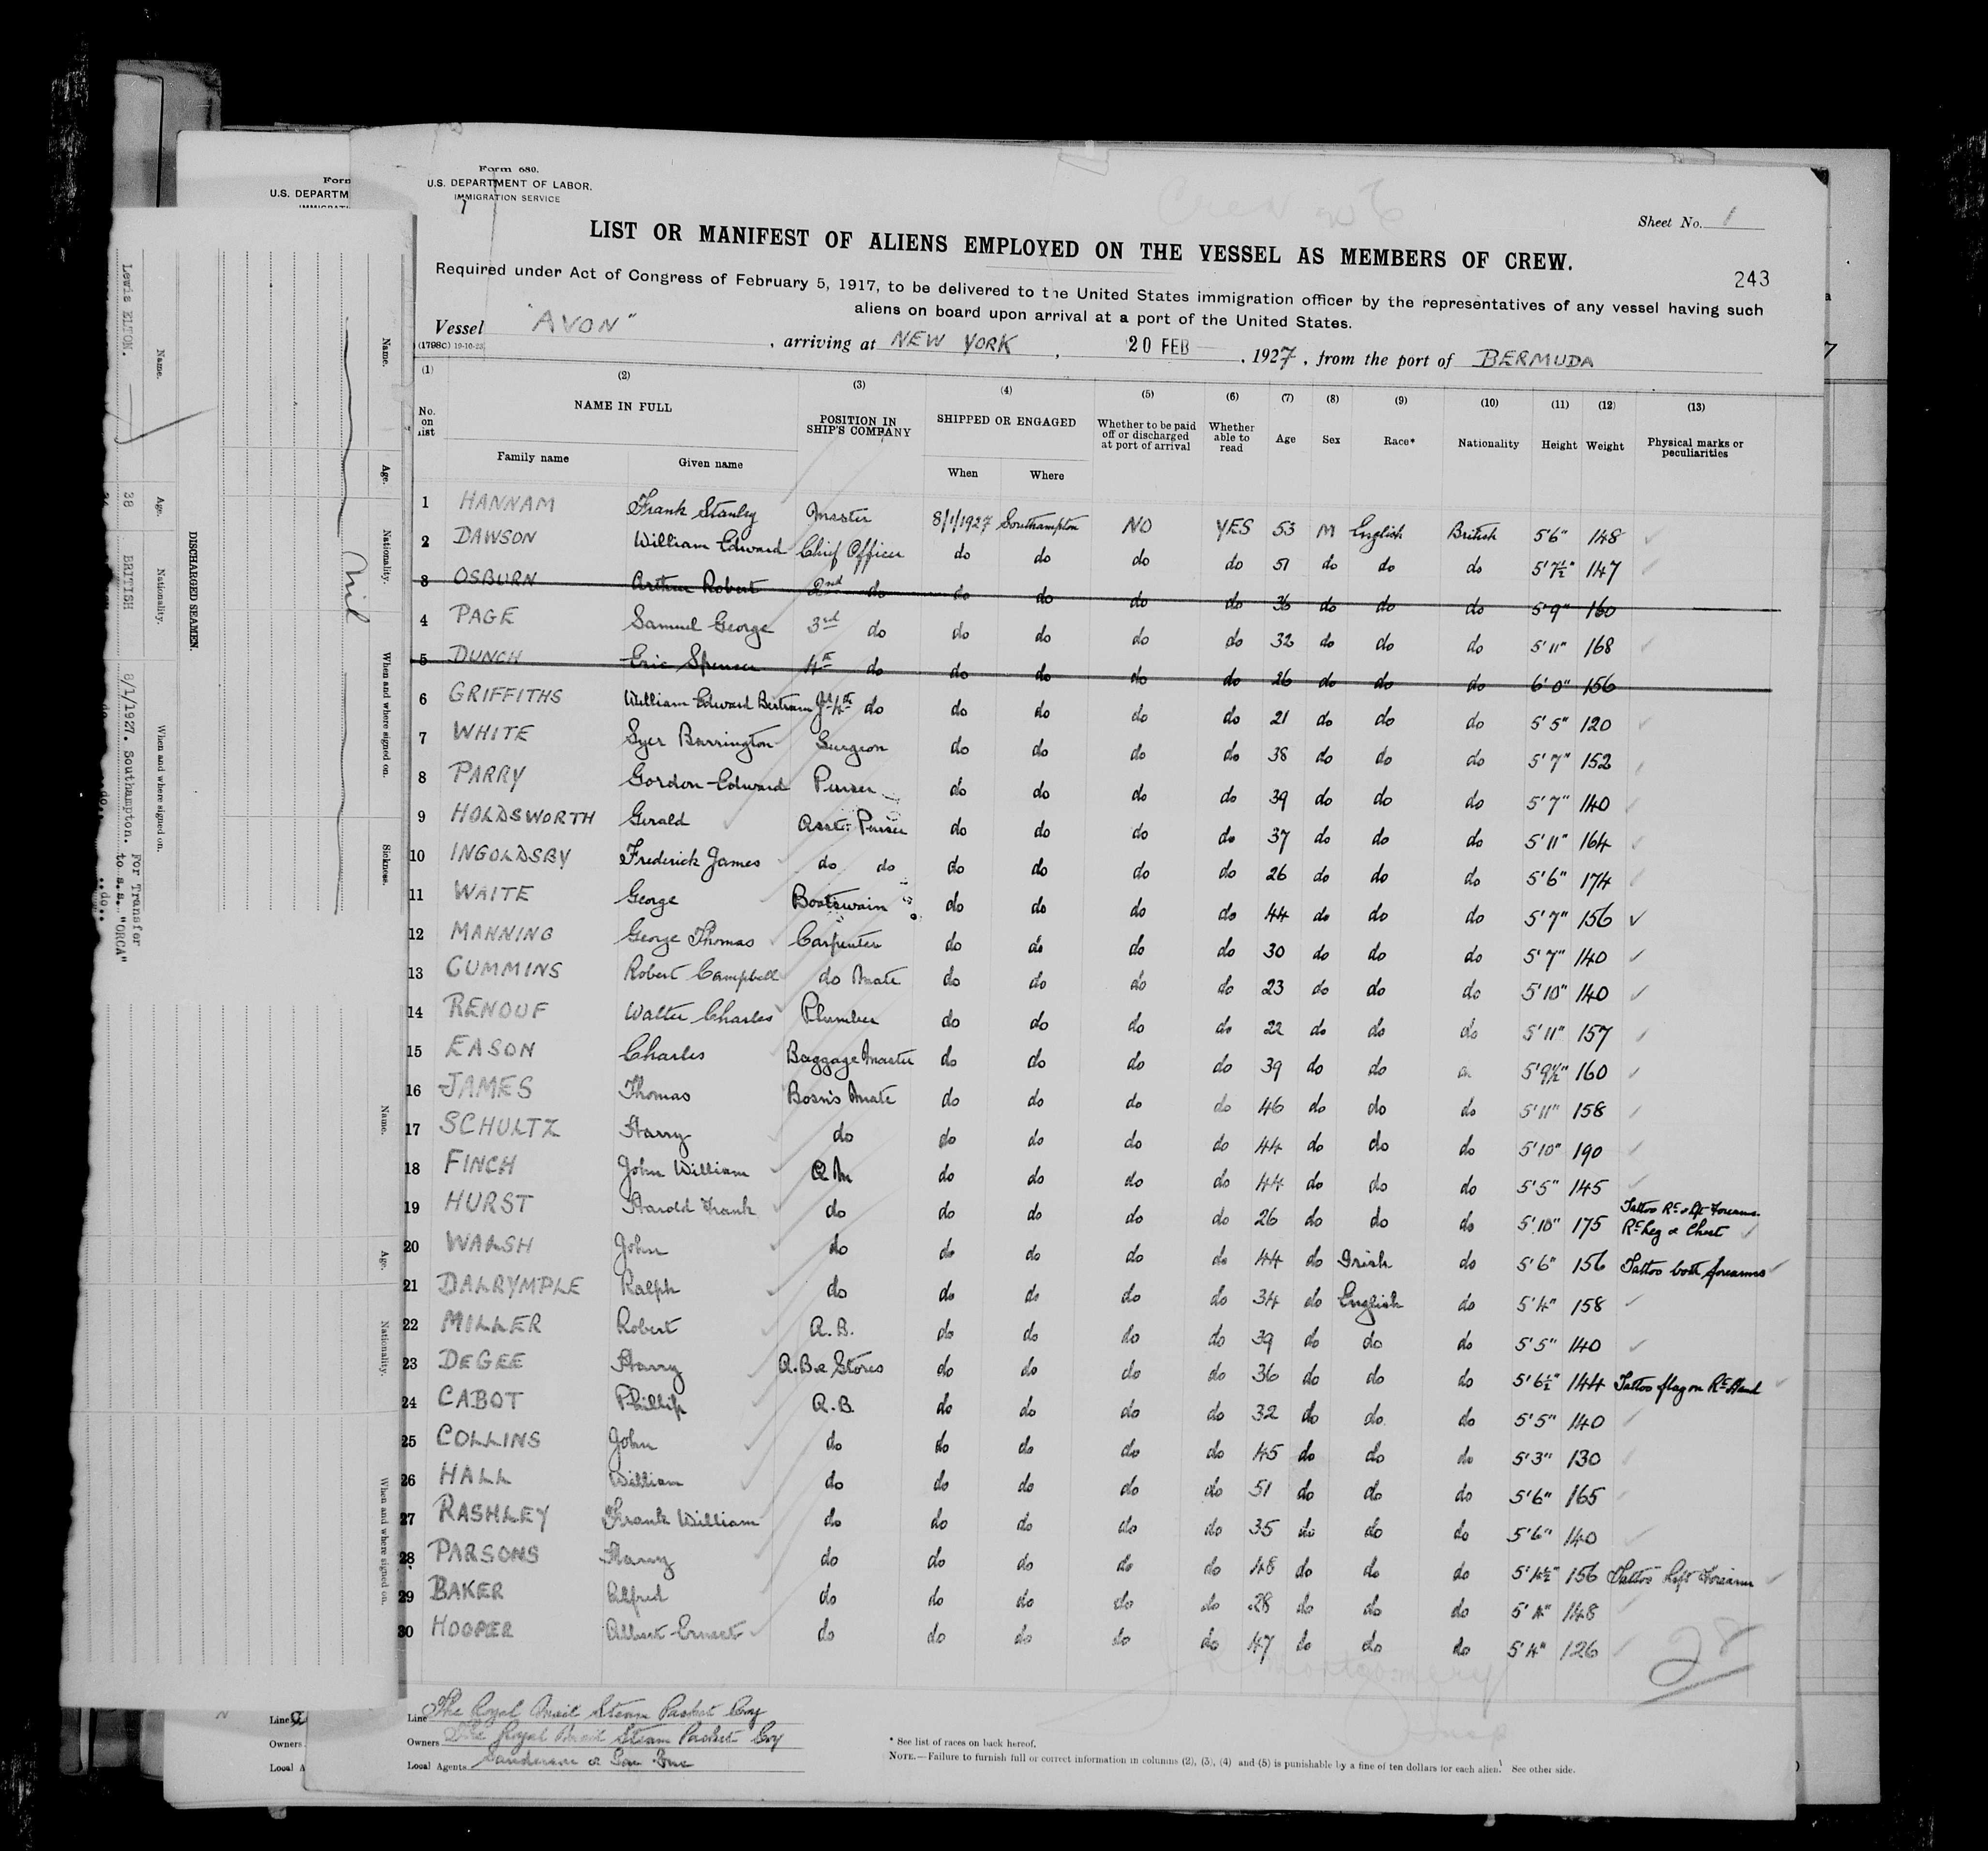 Form 680.
U.S. DEPARTMENT OF LABOR.
IMMIGRATION SERVICE
Sheet No. 1
LIST OR MANIFEST OF ALIENS EMPLOYED ON THE VESSEL AS MEMBERS OF CREW.
243
Required under Act of Congress of February 5, 1917, to be delivered to the United States immigration officer by the representatives of any vessel having such
aliens on board upon arrival at a port of the United States.
Vessel "AVON", arriving at NEW YORK, 20 FEB, 1927, from the port of BERMUDA
(1798C) 19-10-25
(1) (2) (3) (4) (5) (6) (7) (8) (9) (10) (11) (12) (13)
No. on list NAME IN FULL POSITION IN SHIP'S COMPANY SHIPPED OR ENGAGED Whether to be paid off or discharged at port of arrival Whether able to read Age Sex Race* Nationality Height Weight Physical marks or peculiarities
Family name Given name When Where
1 HANNAM Frank Stanley Master 8/1/1927 Southampton NO YES 53 M English British 5'6" 148
2 DAWSON William Edward Chief Officer do do do do 51 do do do 5'7½" 147
3 OSBURN Arthur Robert 2nd do do do do do 36 do do do 5'9" 160
4 PAGE Samuel George 3rd do do do do do 32 do do do 5'11" 168
5 DUNCH Eric Spencer 4th do do do do do 26 do do do 6'0" 156
6 GRIFFITHS William Edward Bertram Jr 4th do do do do do 21 do do do 5'5" 120
7 WHITE Syer Barrington Surgeon do do do do 38 do do do 5'7" 152
8 PARRY Gordon Edward Purser do do do do 39 do do do 5'7" 140
9 HOLDSWORTH Gerald Asst: Purser do do do do 37 do do do 5'11" 164
10 INGOLDSBY Frederick James do do do do do do 26 do do do 5'6" 174
11 WAITE George Boatswain do do do do 44 do do do 5'7" 156
12 MANNING George Thomas Carpenter do do do do 30 do do do 5'7" 140
13 CUMMINS Robert Campbell do Mate do do do do 23 do do do 5'10" 140
14 RENOUF Walter Charles Plumber do do do do 22 do do do 5'11" 157
15 EASON Charles Baggage Master do do do do 39 do do do 5'9½" 160
16 JAMES Thomas Bosn's Mate do do do do 46 do do do 5'11" 158
17 SCHULTZ Harry do do do do do 44 do do do 5'10" 190
18 FINCH John William Q M do do do do 44 do do do 5'5" 145
19 HURST Harold Frank do do do do do 26 do do do 5'10" 175 Tattoo Rt & Lft Forearms. Rt Leg & Chest
20 WALSH John do do do do do 44 do Irish do 5'6" 156 Tattoo both forearms
21 DALRYMPLE Ralph do do do do do 34 do English do 5'4" 158
22 MILLER Robert A.B. do do do do 39 do do do 5'5" 140
23 DEGEE Harry A.B. & Stores do do do do 36 do do do 5'6½" 144 Tattoo flag on Rt Hand
24 CABOT Phillip A.B. do do do do 32 do do do 5'5" 140
25 COLLINS John do do do do do 45 do do do 5'3" 130
26 HALL William do do do do do 51 do do do 5'6" 165
27 RASHLEY Frank William do do do do do 35 do do do 5'6" 140
28 PARSONS Harry do do do do do 48 do do do 5'4½" 156 Tattoo Left Forearm
29 BAKER Alfred do do do do do 28 do do do 5'4" 148
30 HOOPER Albert Ernest do do do do do 47 do do do 5'4" 126
28
Line The Royal Mail Steam Packet Coy
Owners The Royal Mail Steam Packet Coy
Local Agents Sanderson & Son Inc
* See list of races on back hereof.
NOTE.—Failure to furnish full or correct information in columns (2), (3), (4) and (5) is punishable by a fine of ten dollars for each alien. See other side.
Form
U.S. DEPARTM
Line
Owners
Local A
DISCHARGED SEAMEN.
Name. Age. Nationality. When and where signed on.
Lewis ELTON. 38 BRITISH 8/1/1927. Southampton. For Transfer
to s.s. "ORCA"
..do..
Name. Age. Nationality. When and where signed on. Sickness.
Nil
Name. Age. Nationality. When and where signed on.